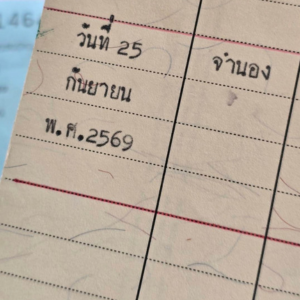 146
วันที่ 25
จำนอง
กันยายน
พ.ศ.2569